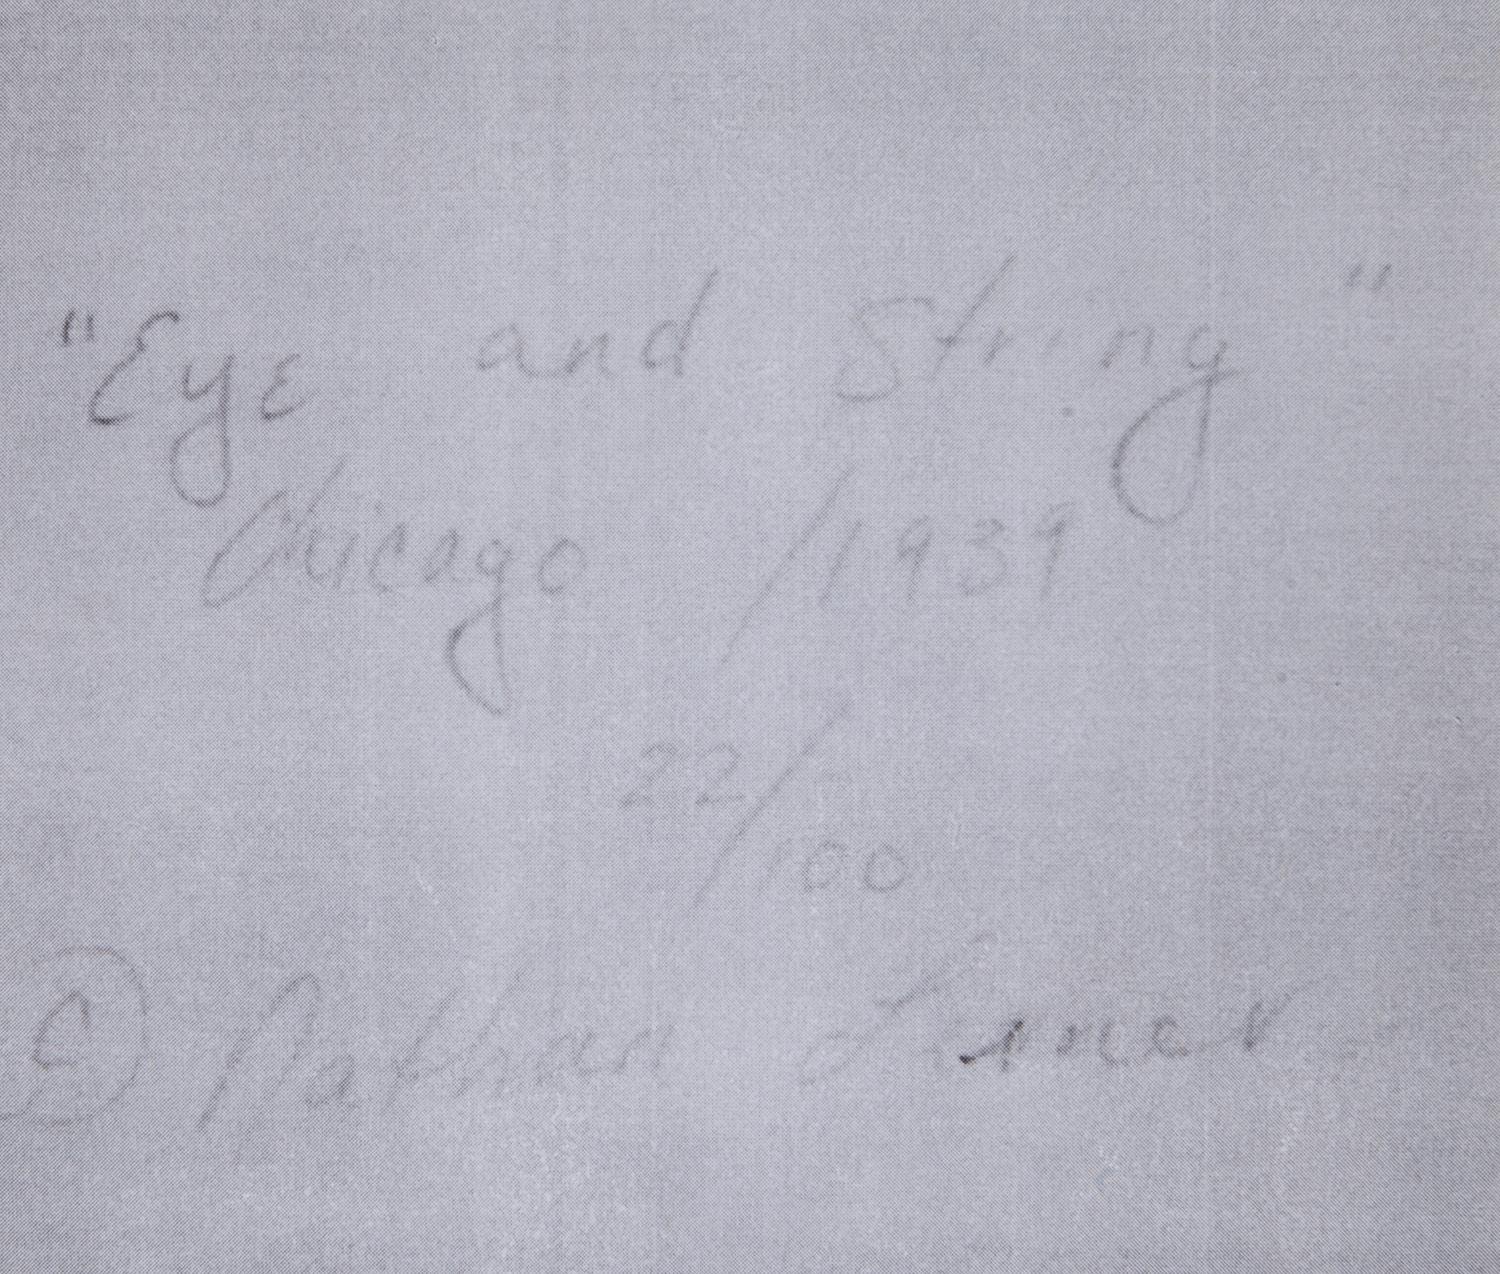 "Eye and String"
Chicago / 1939
22/100
© Nathan Lerner